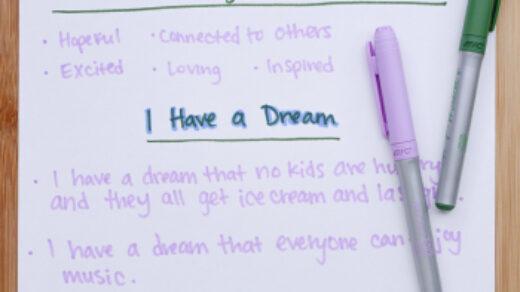 • Hopeful • Connected to others
• Excited • Loving • Inspired
I Have a Dream
• I have a dream that no kids are hungry
and they all get ice cream and
• I have a dream that everyone can enjoy
music.
BIC
BIC